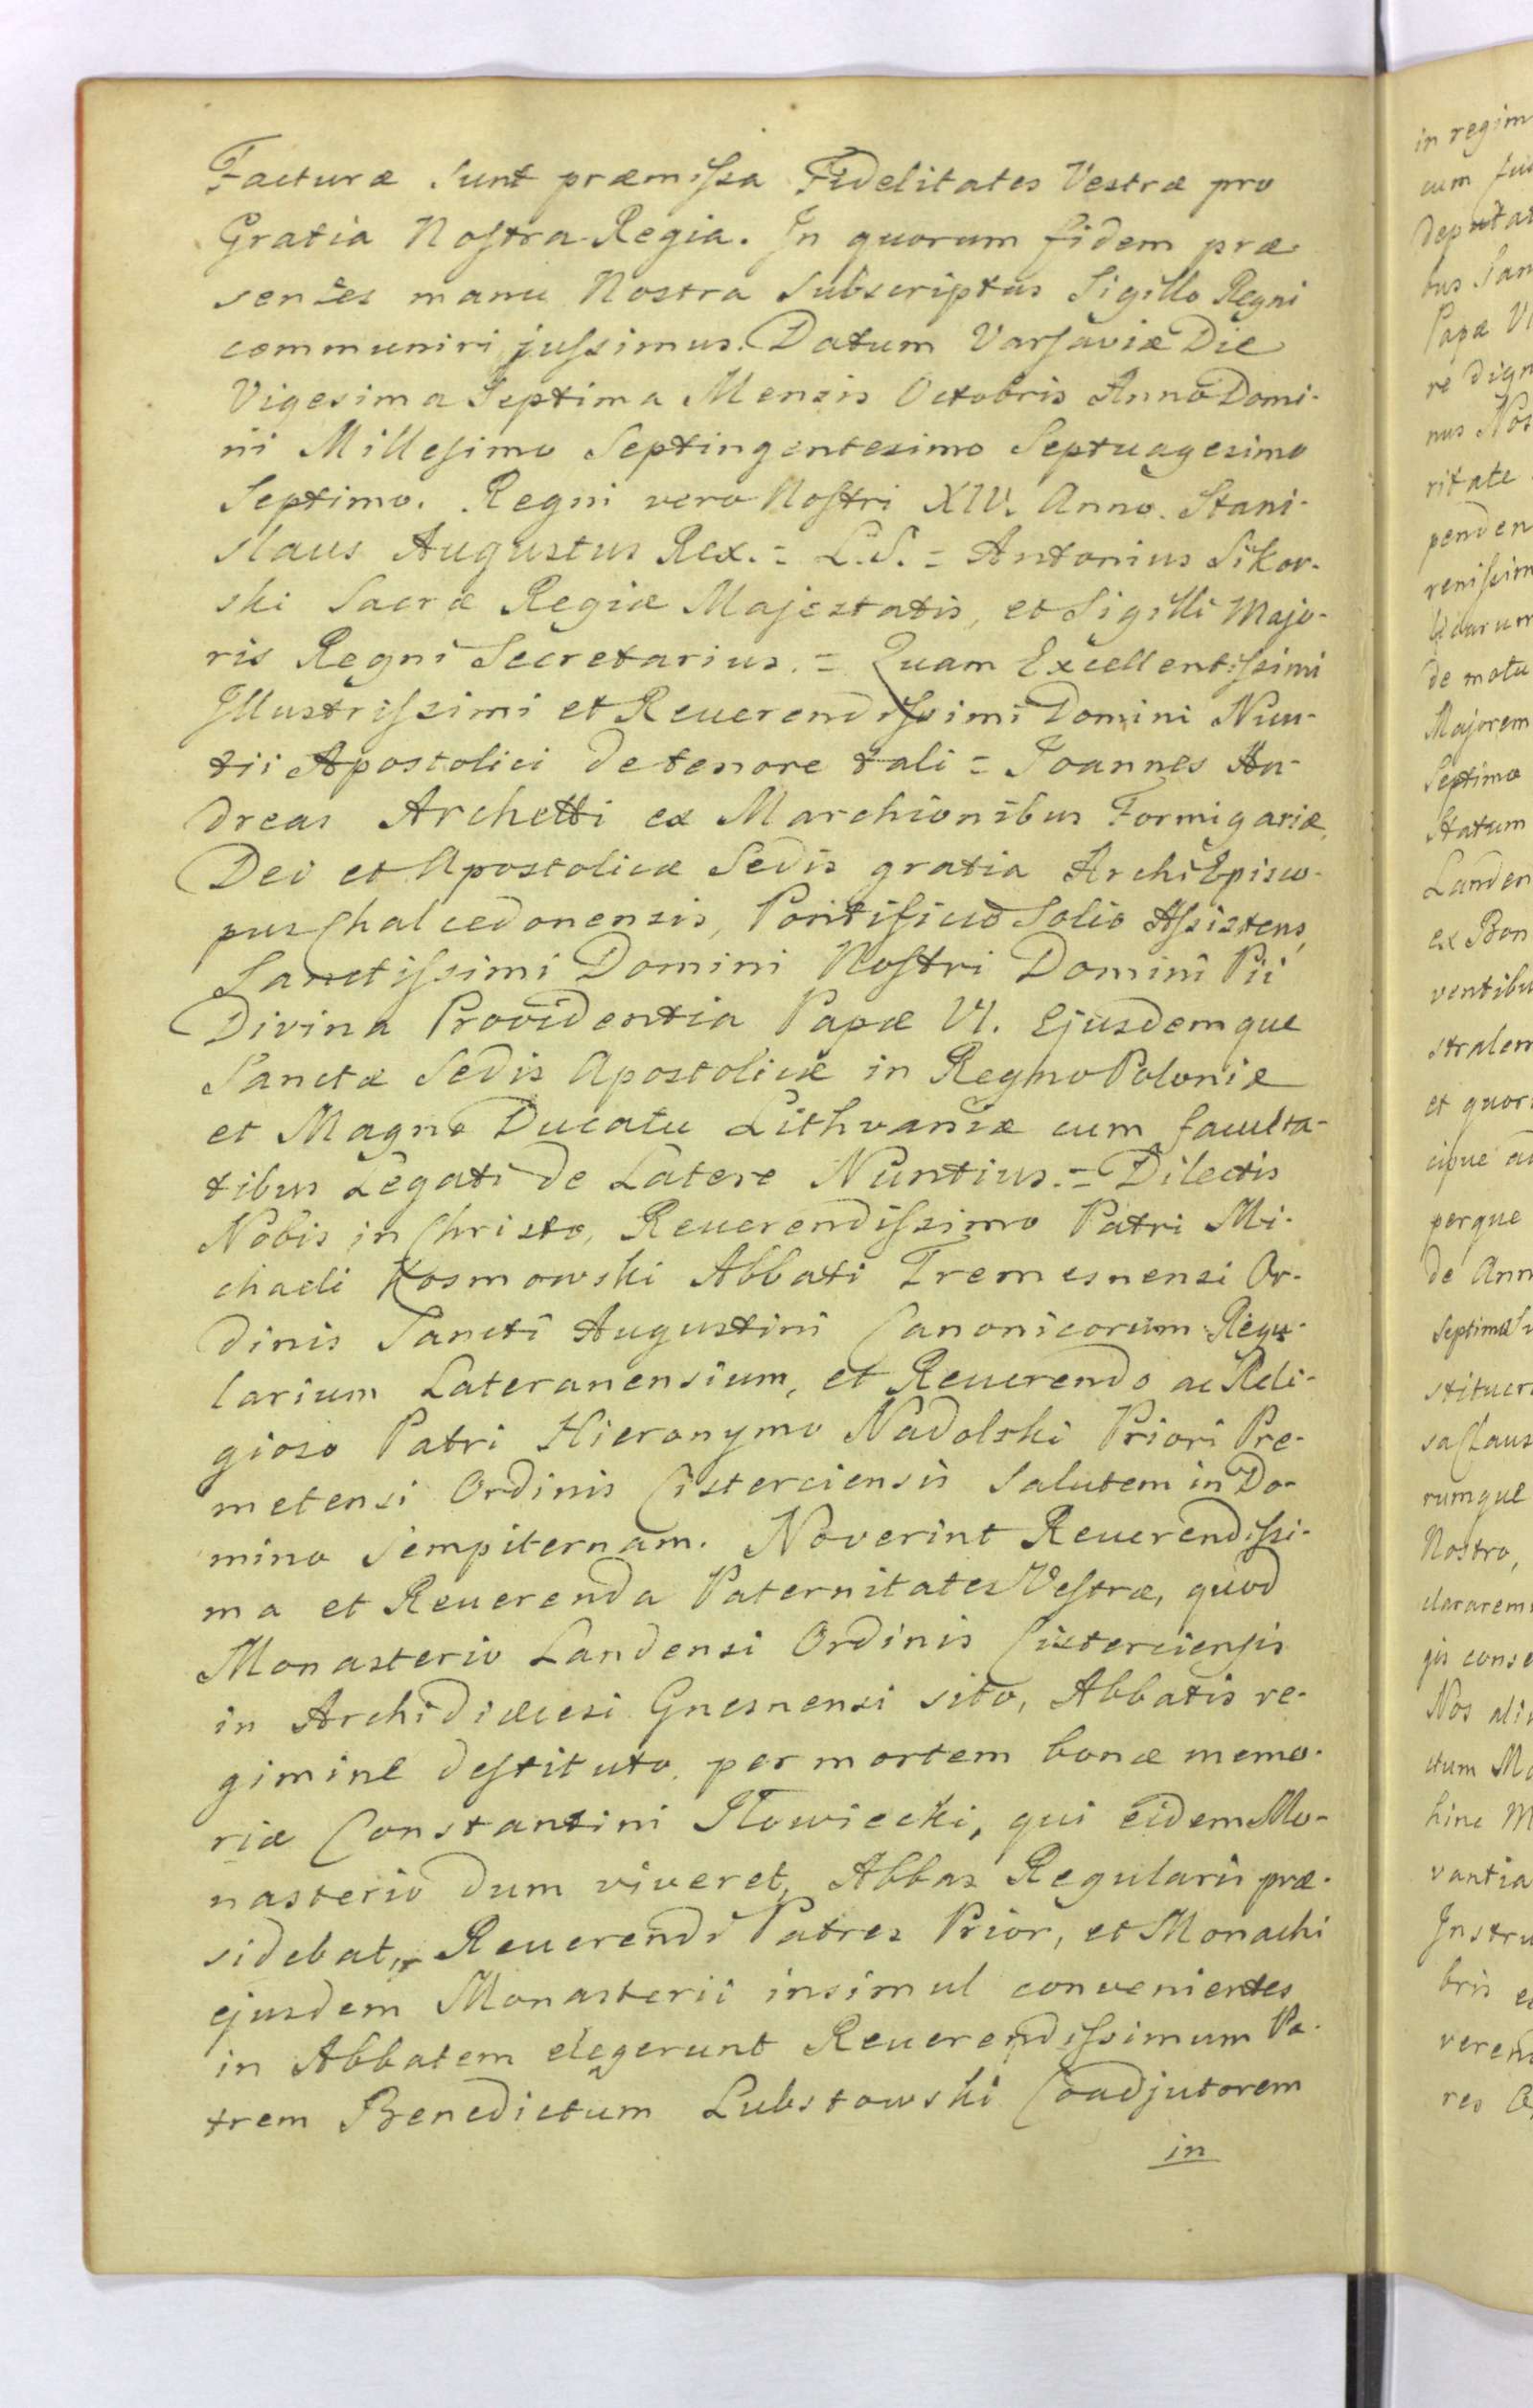 Facturæ sunt præmissa Fidelitates Vestræ pro
Gratia Nostra Regia. In quorum fidem præ-
sentes manu Nostra Subscriptas Sigillo Regni
communiri jussimus. Datum Varsaviæ Die
Vigesima Septima Mensis Octobris Anno Domi-
ni Millesimo Septingentesimo Septuagesimo
Septimo. Regni vero Nostri XIV. Anno. Stani-
slaus Augustus Rex. = L.S. = Antonius Sikor-
ski Sacræ Regiæ Majestatis, et Sigilli Majo-
ris Regni Secretarius. = Quam Excellentissimi
Illustrissimi et Reuerendissimi Domini Nun-
tii Apostolici de tenore tali = Joannes An-
dreas Archetti ex Marchionibus Formigariæ,
Dei et Apostolicæ Sedis gratia ArchiEpisco-
pus Chalcedonensis, Pontificio Solio Assistens,
Sanctissimi Domini Nostri Domini Pii
Divina Providentia Papæ VI. Ejusdemque
Sanctæ Sedis Apostolicæ in Regno Poloniæ
et Magno Ducatu Lithvaniæ cum faculta-
tibus Legati de Latere Nuntius. = Dilectis
Nobis in Christo, Reuerendissimo Patri Mi-
chaeli Kosmowski Abbati Tremesnensi Or-
dinis Sancti Augustini Canonicorum Regu-
larium Lateranensium, et Reuerendo ac Reli-
gioso Patri Hieronymo Nadolski Priori Pre-
metensi Ordinis Cisterciensis Salutem in Do-
mino sempiternam. Noverint Reuerendissi-
ma et Reuerenda Paternitates Vestræ, quod
Monasterio Landensi Ordinis Cisterciensis
in Archidiæcesi Gnesnensi sito, Abbatis re-
gimine destituto per mortem bonæ memo-
riæ Constantini Iłowiecki, qui eidem Mo-
nasterio dum viveret, Abbas Regularis præ-
sidebat, Reuerendi Patres Prior, et Monachi
ejusdem Monasterii insimul convenientes
in Abbatem elegerunt Reuerendissimum Pa-
trem Benedictum Lubstowski Coadjutorem
in